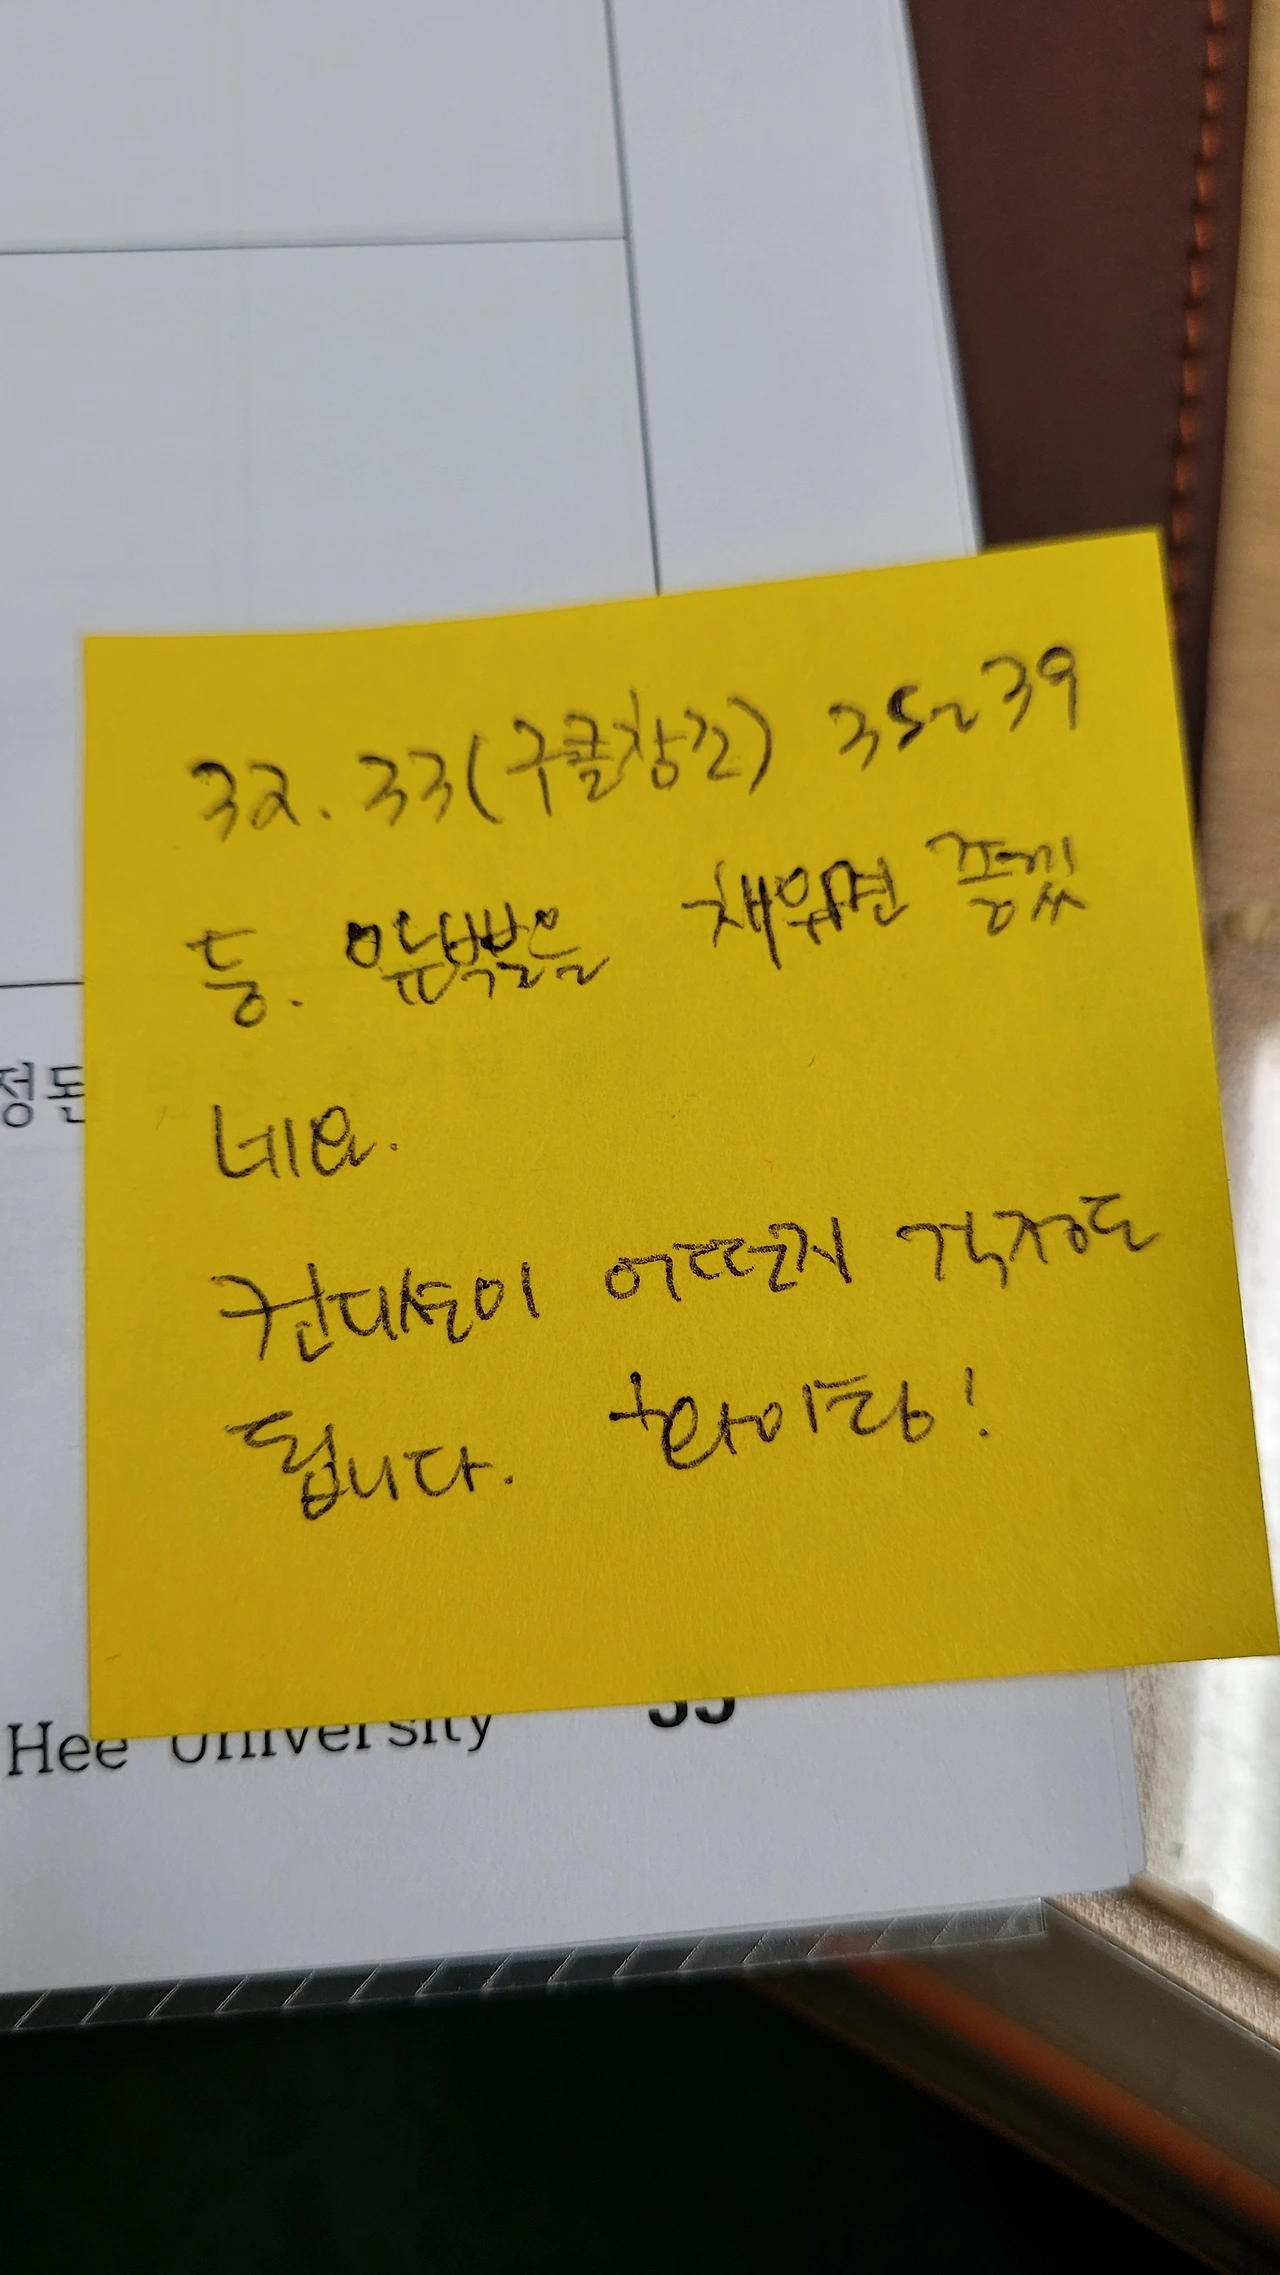 32. 33(구글창조) 35~39
등. 윗부분을 채우면 좋겠
네요.
컨디션이 어떤지 걱정도
됩니다. 화이팅!
정돈
Hee University 35